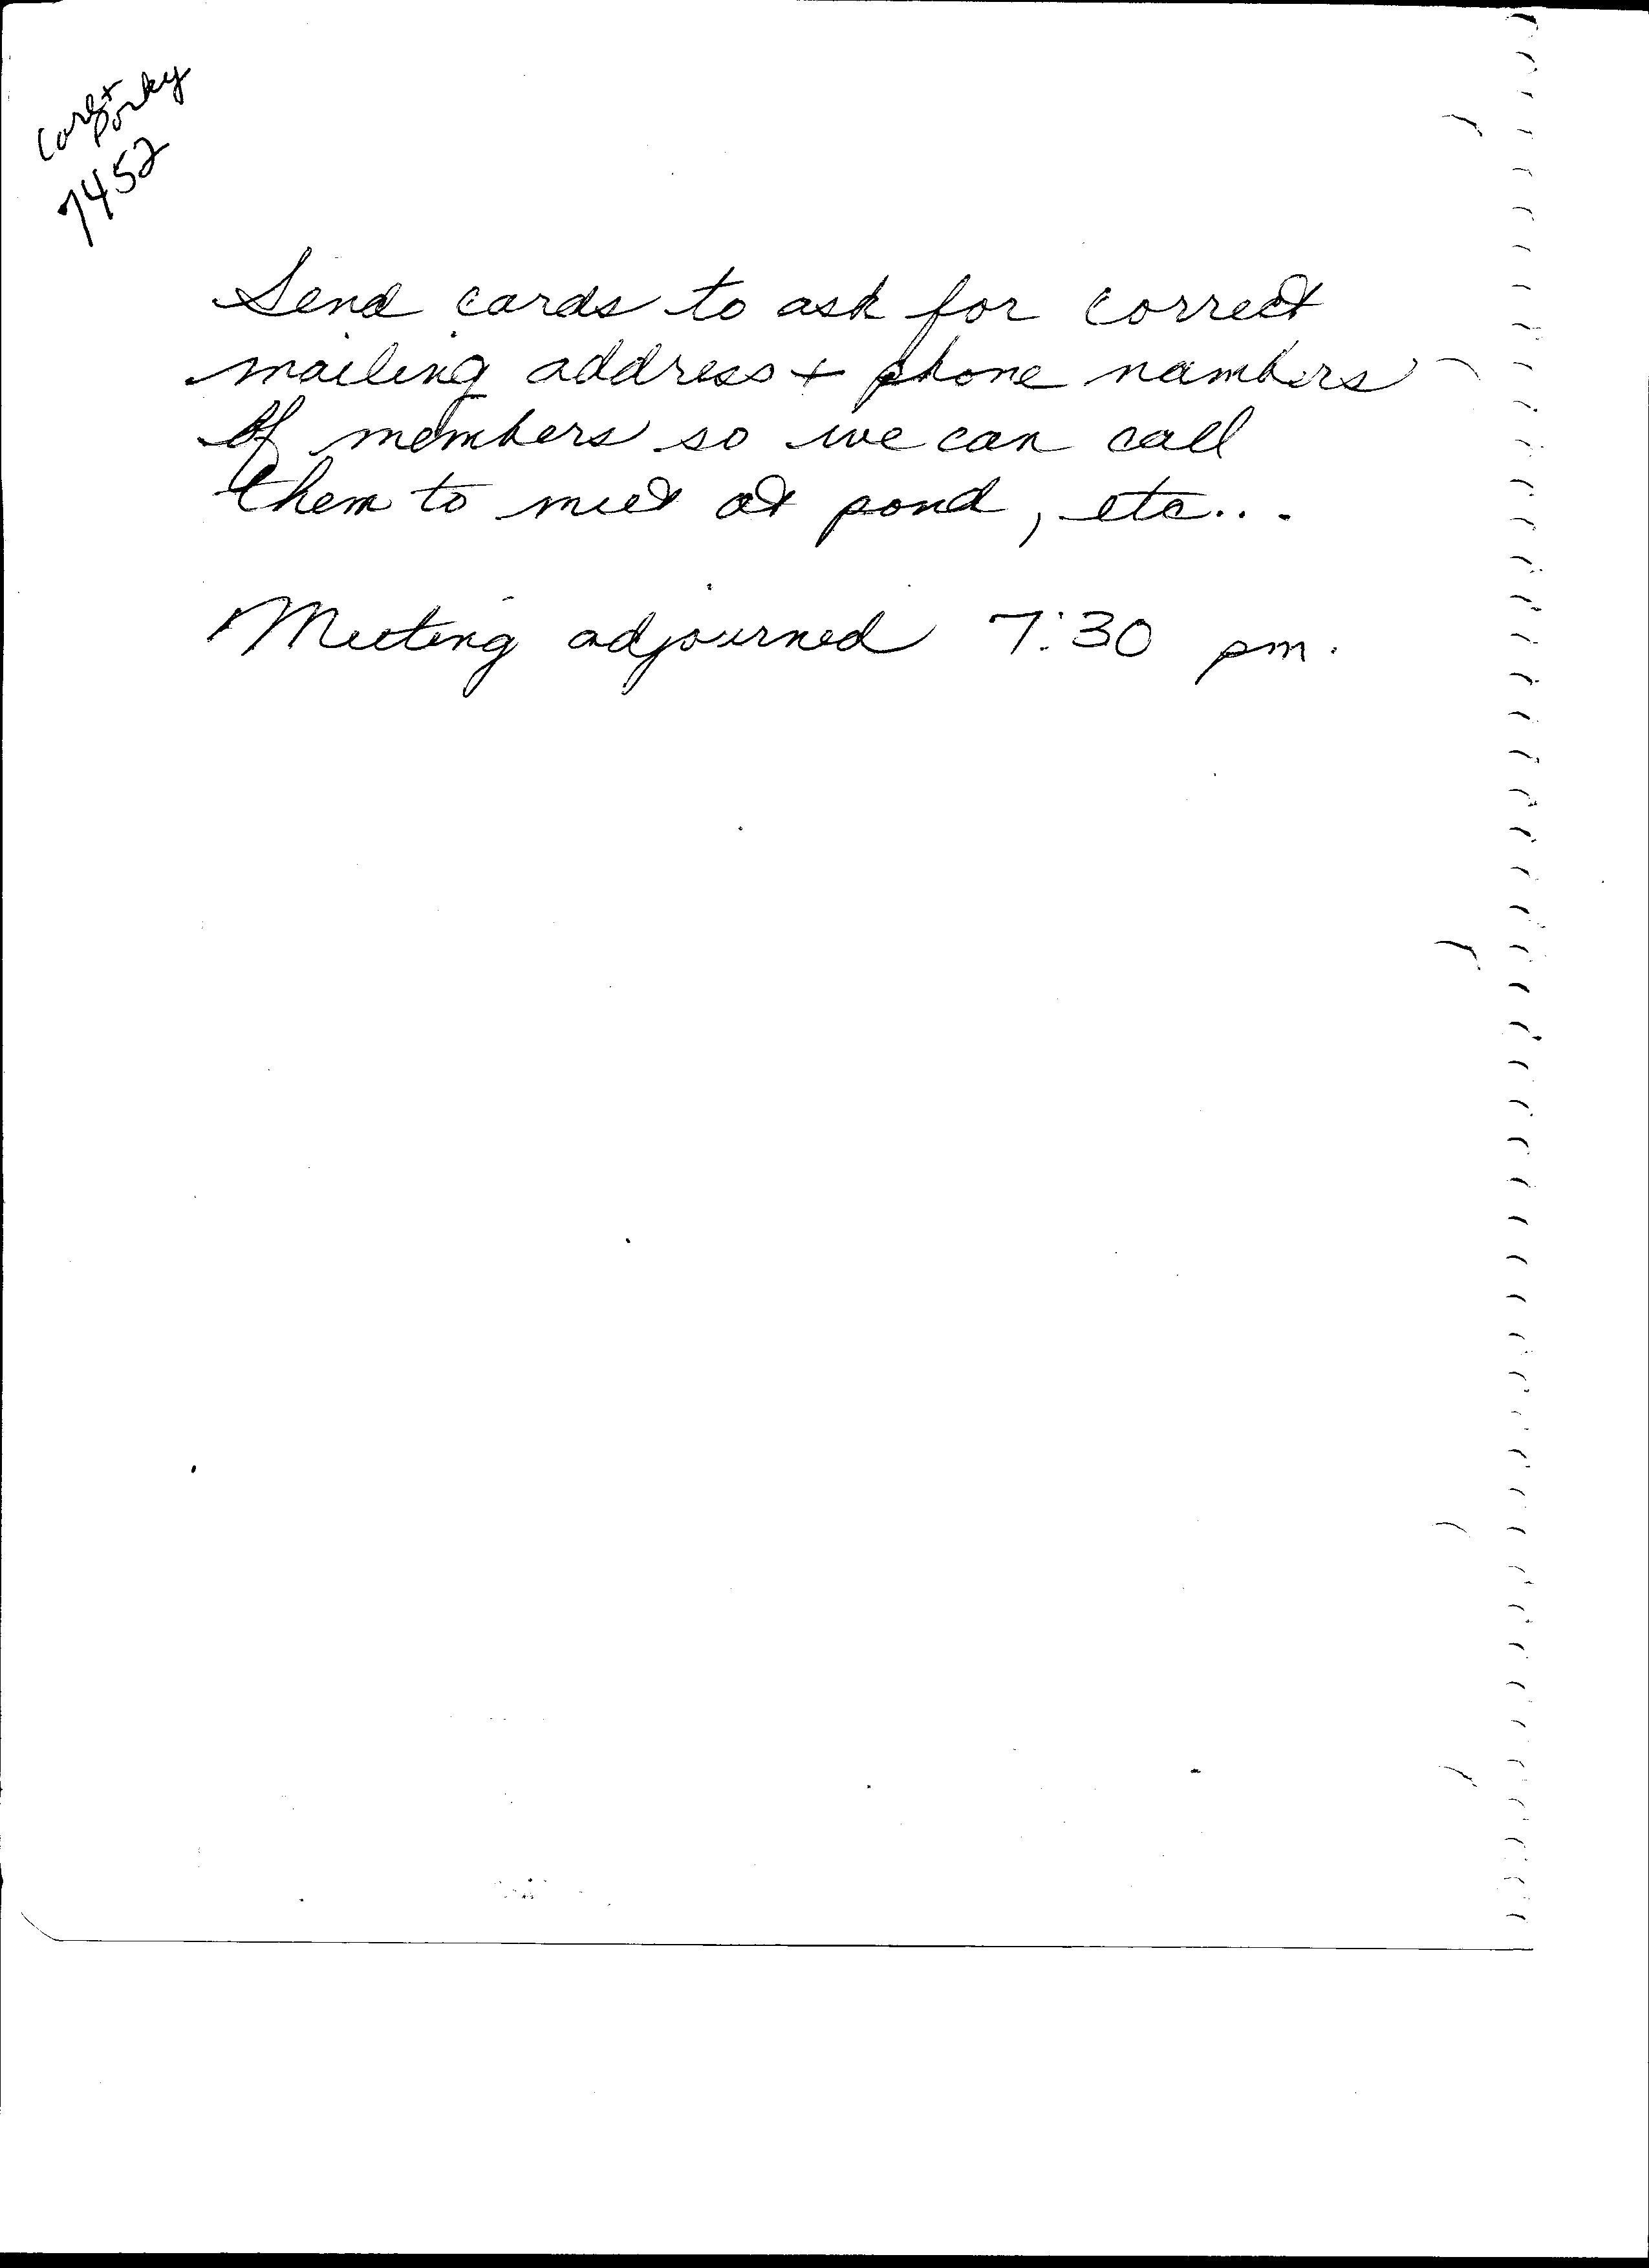 Porky
7452
Send cards to ask for correct
mailing address + phone numbers
of members so we can call
them to meet at pond, etc...
Meeting adjourned 7:30 pm.